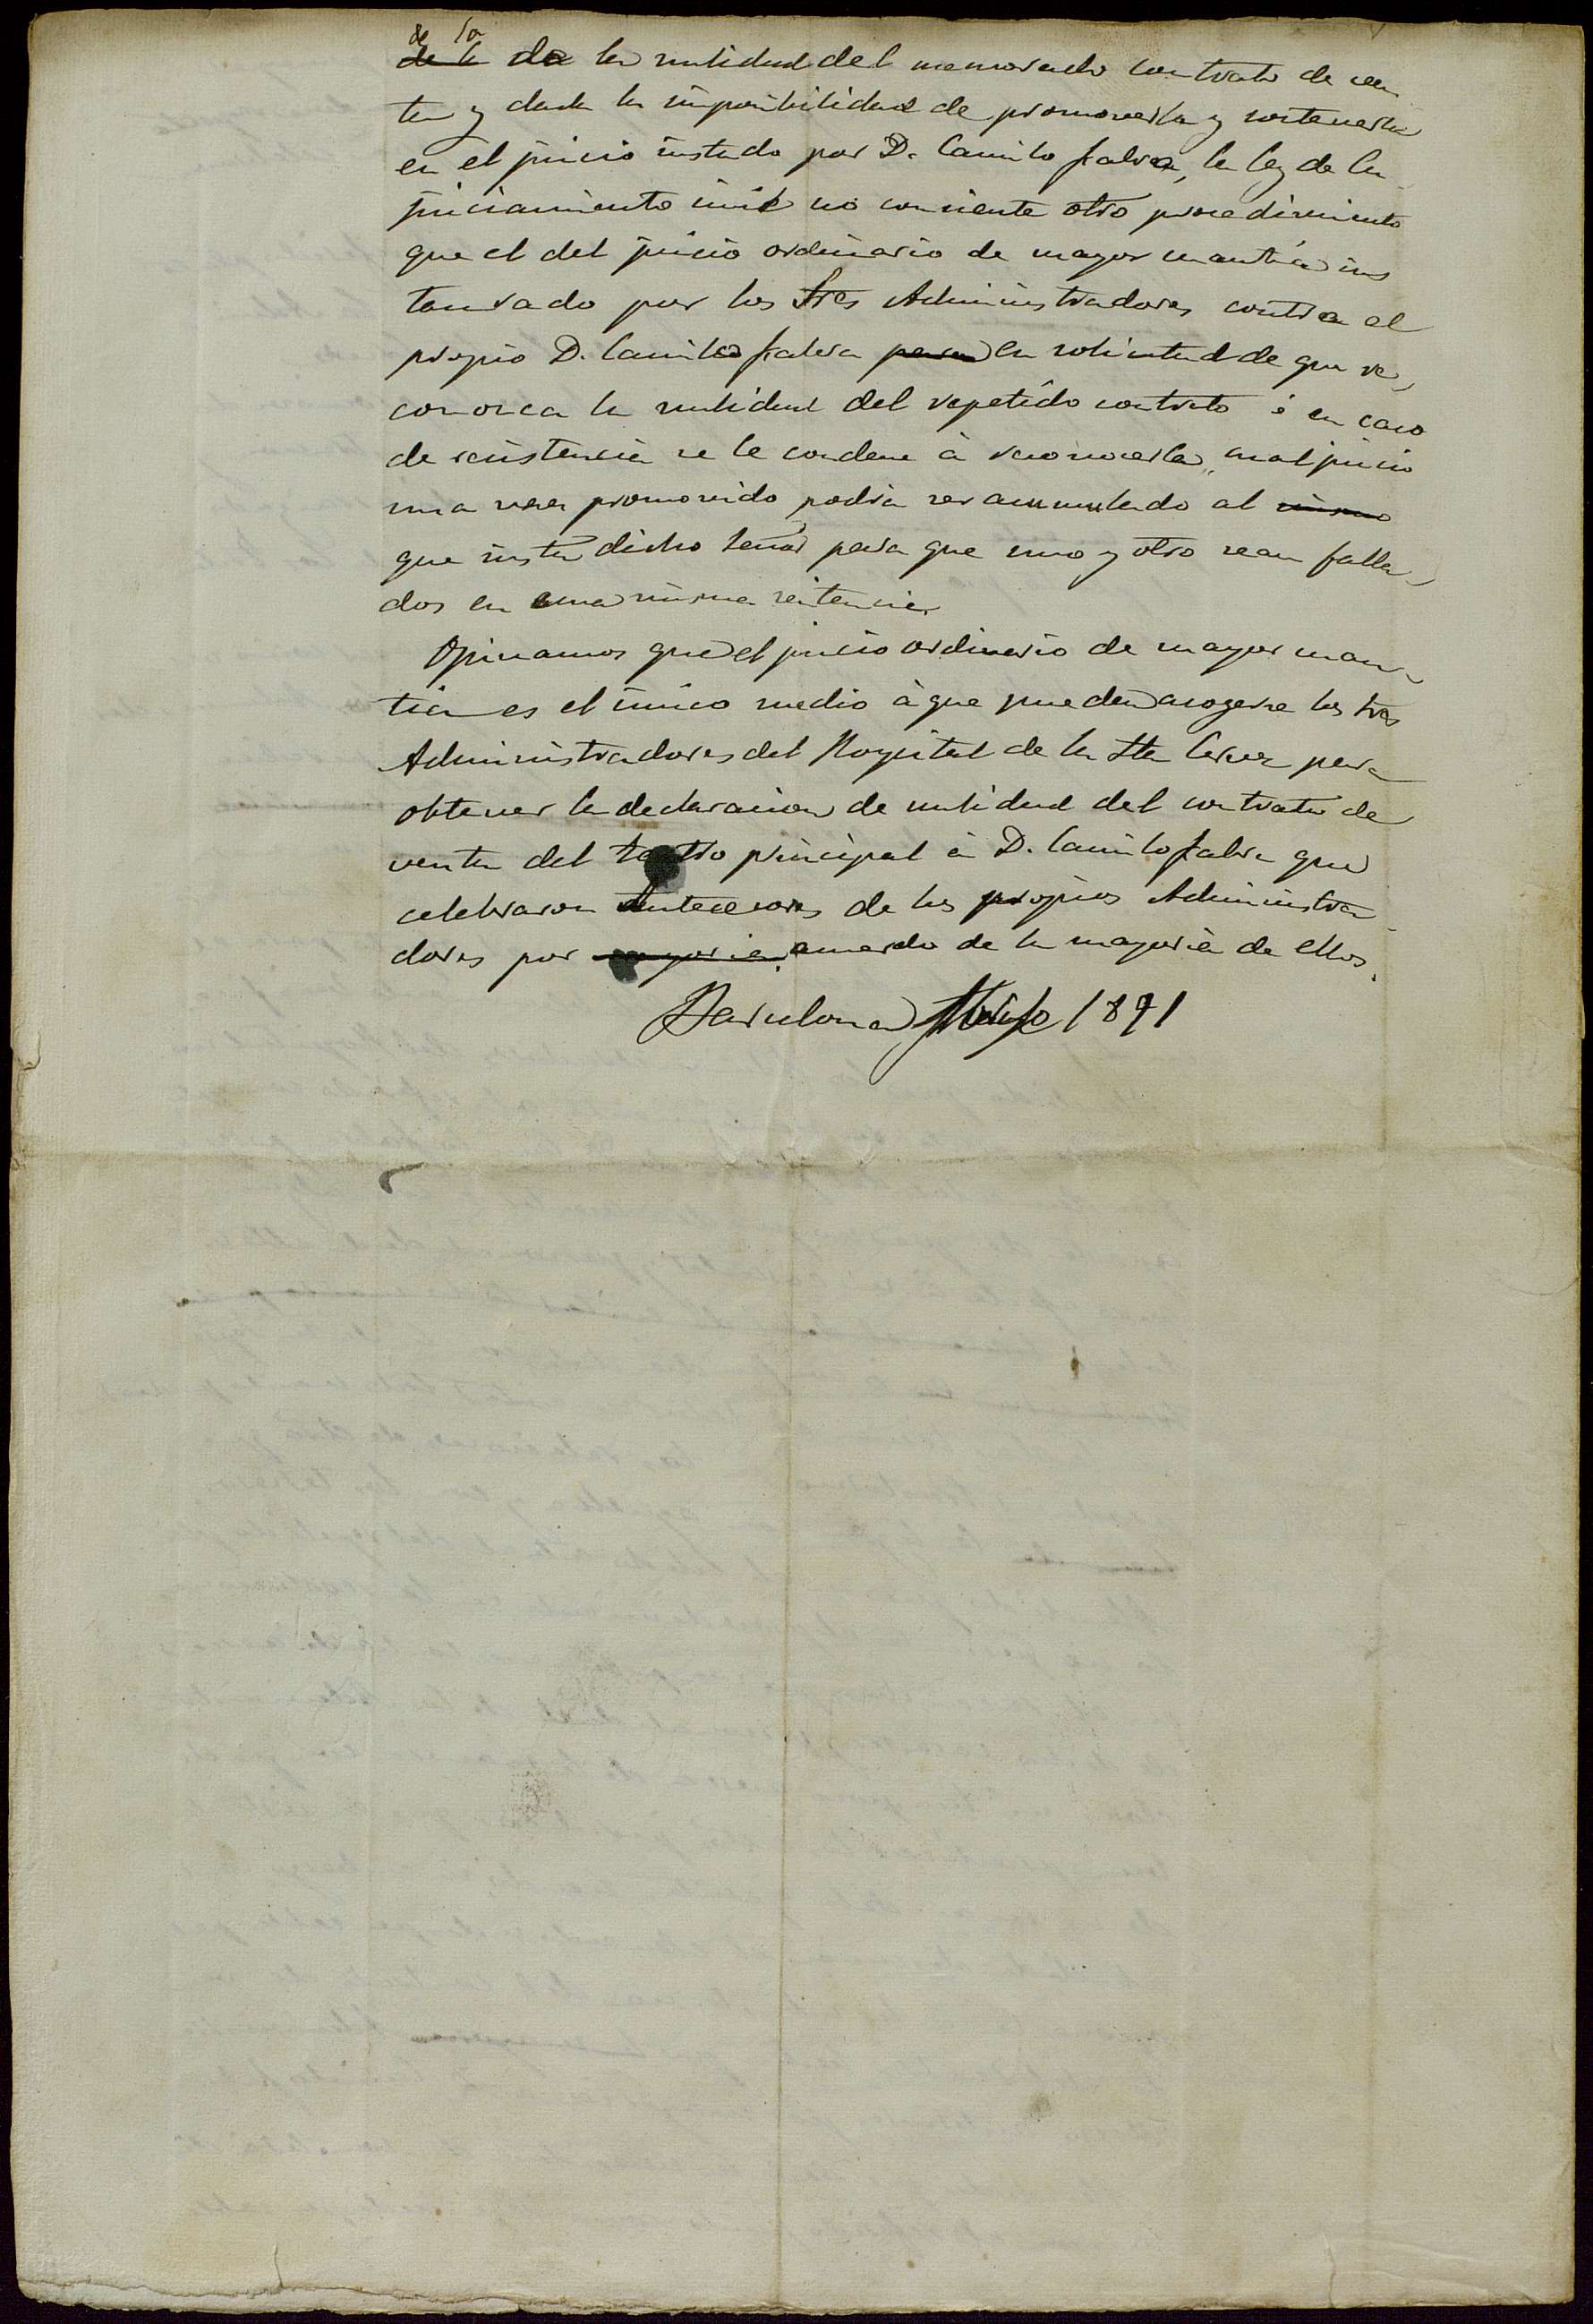 de la
de la de la nulidad del memorado contrato de ven
ta y dada la imposibilidad de promoverla y sostenerla
en el juicio instado por D. Camilo Fabra, la ley de En
juiciamiento civil no consiente otro procedimiento
que el del juicio ordinario de mayor cuantia ins
taurado por los tres Administradores contra el
propio D. Camilo Fabra para en solicitud de que re
conozca la nulidad del repetido contrato ó en caso
de resistencia se le condene á reconocerla, cual juicio
una vez promovido podria ser acumulado al mismo
que insta dicho Señor para que uno y otro sean falla
dos en una misma sentencia.
Opinamos que el juicio ordinario de mayor cuan
tia es el único medio á que pueden acogerse los tres
Administradores del Hospital de la Sta Cruz para
obtener la declaracion de nulidad del contrato de
venta del teatro principal á D. Camilo Fabra que
celebraron antecesores de los propios Administra
dores por mayoria acuerdo de la mayoria de ellos.
Barcelona Marzo 1891